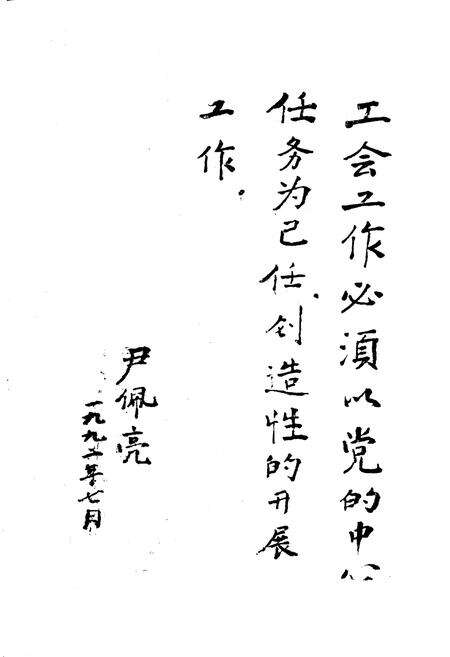 工会工作必須以党的中心
任务为己任,创造性的开展
工作.
尹佩亮
一九九二年七月